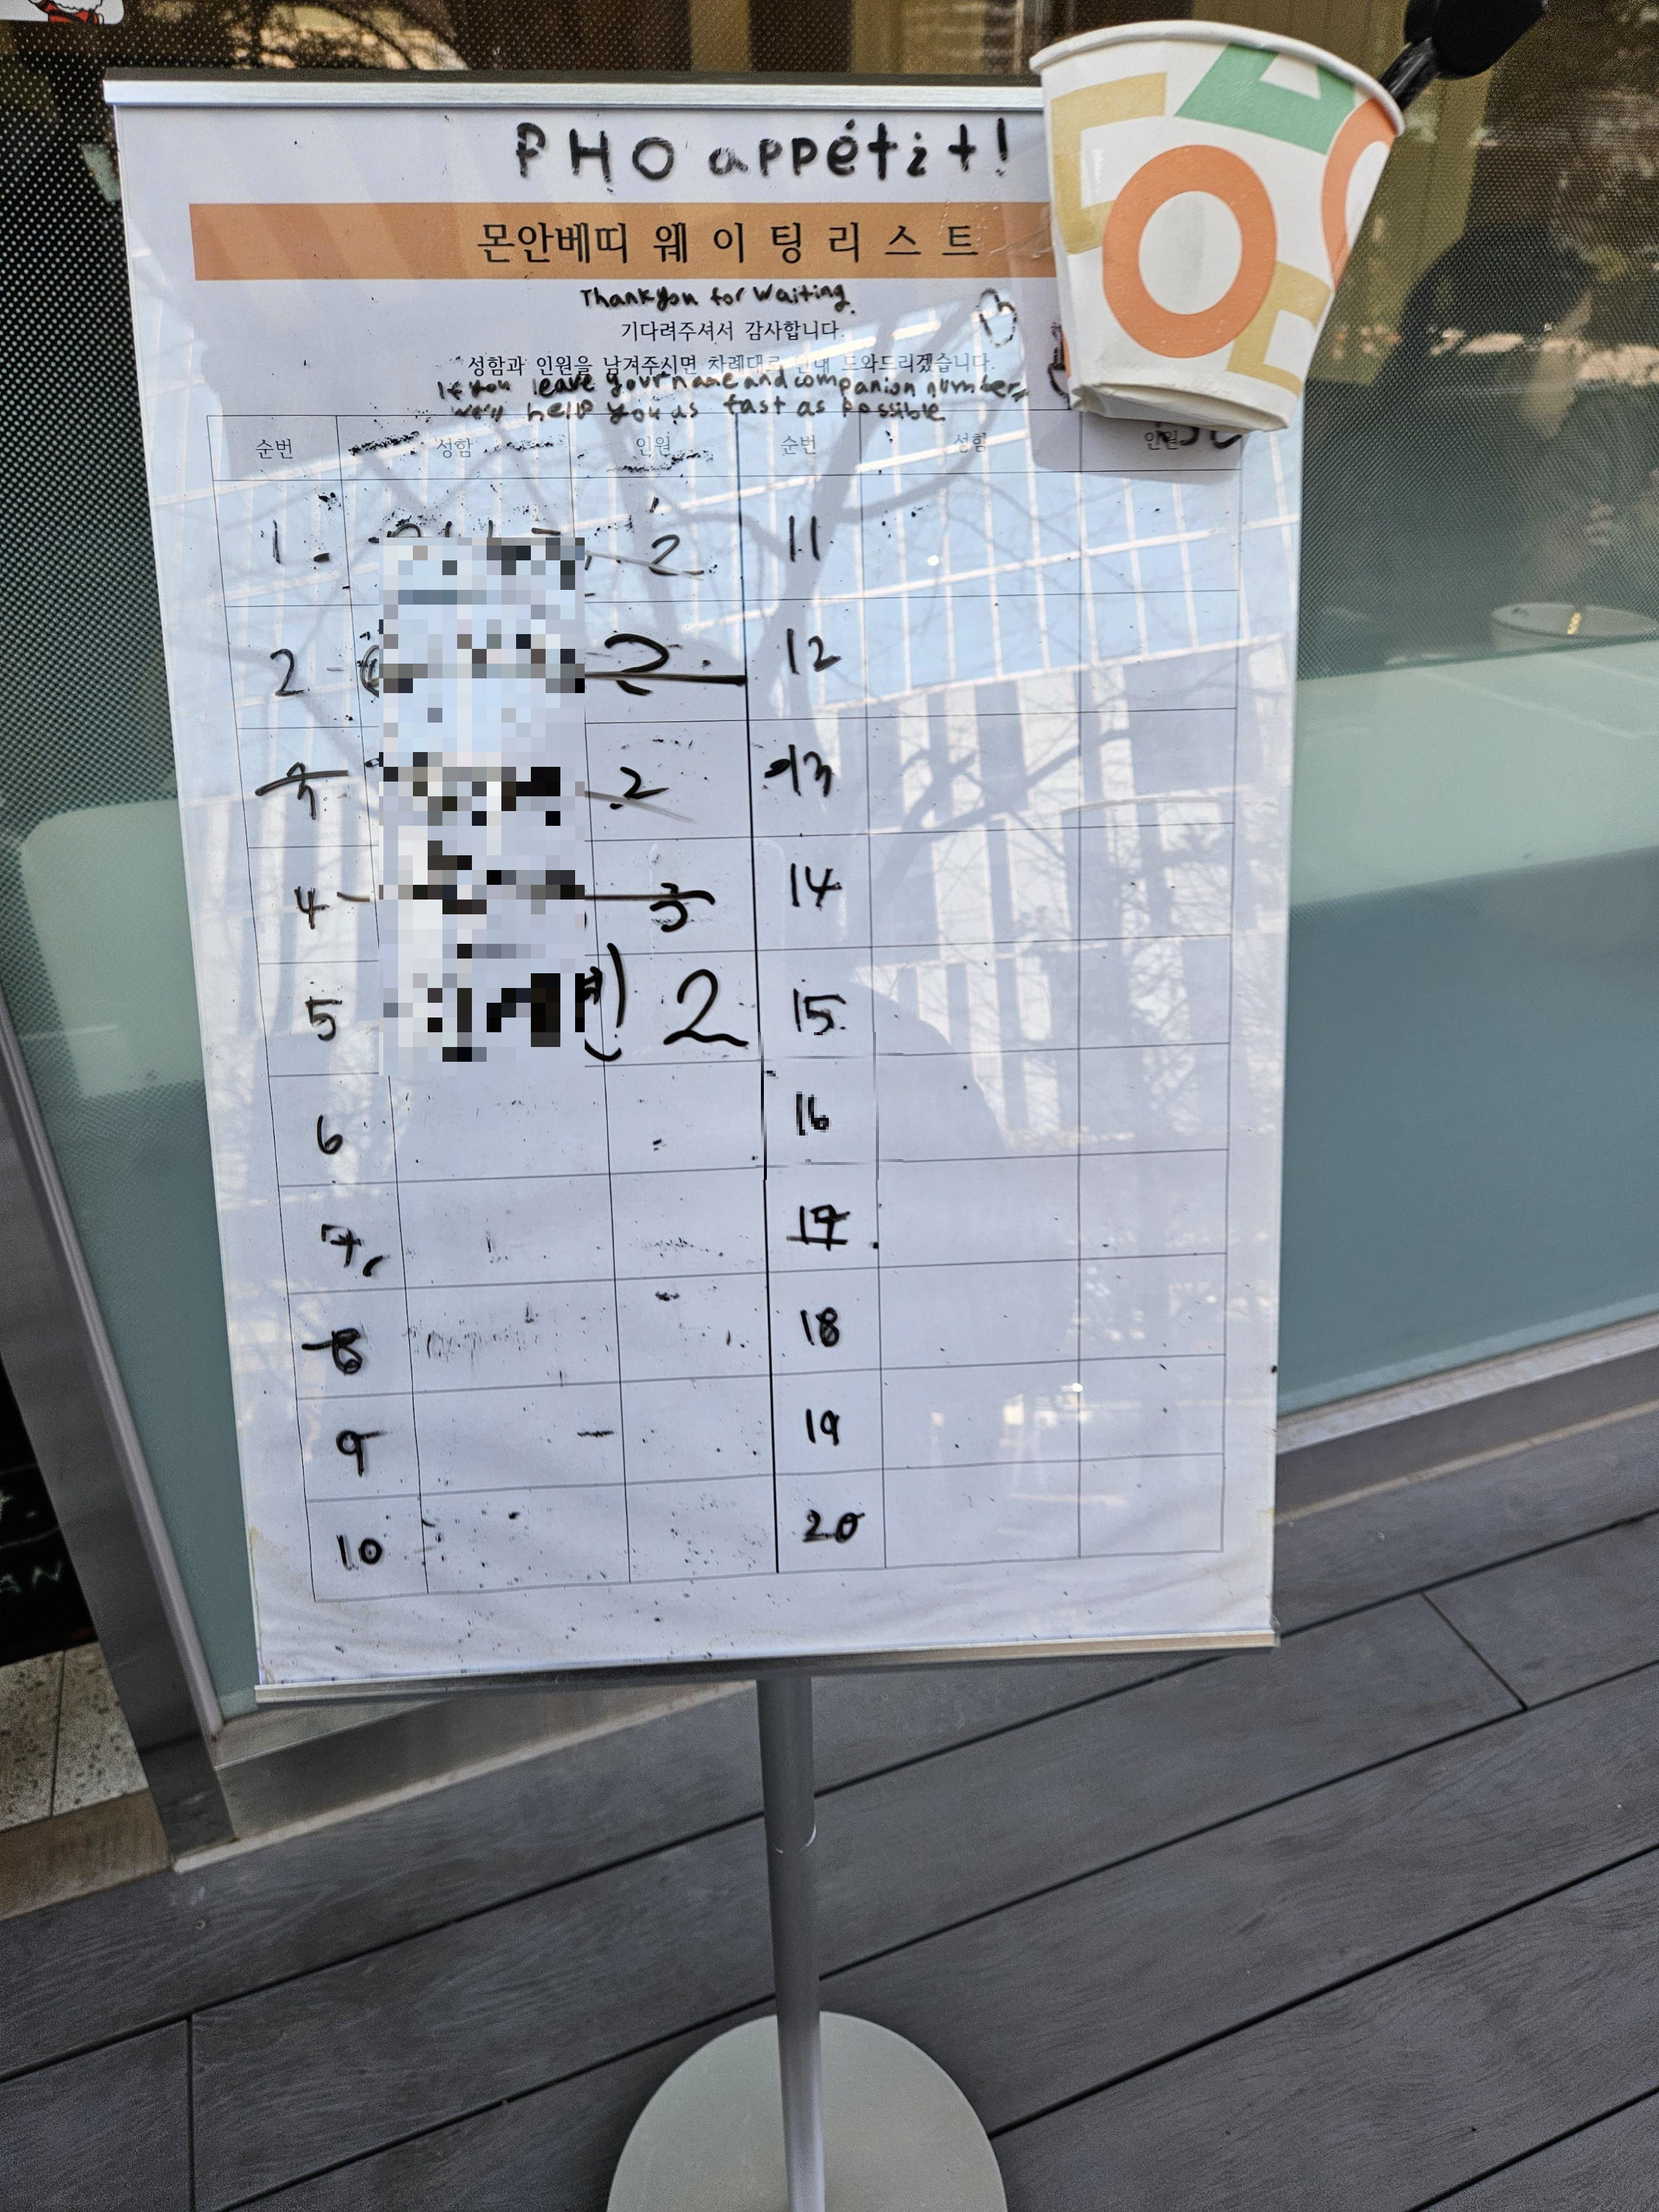 PHO appétit!
몬안베띠 웨이팅리스트
Thank you for waiting.
기다려주셔서 감사합니다.
성함과 인원을 남겨주시면 차례대로 안내 도와드리겠습니다.
If you leave your name and companion number,
we'll help you as fast as possible
순번 성함 인원 순번 성함 인원
1 - 2 11
2 - 2 12
3 2 13
4 - 3 14
5 2 15
6 16
7 17
8 18
9 19
10 20